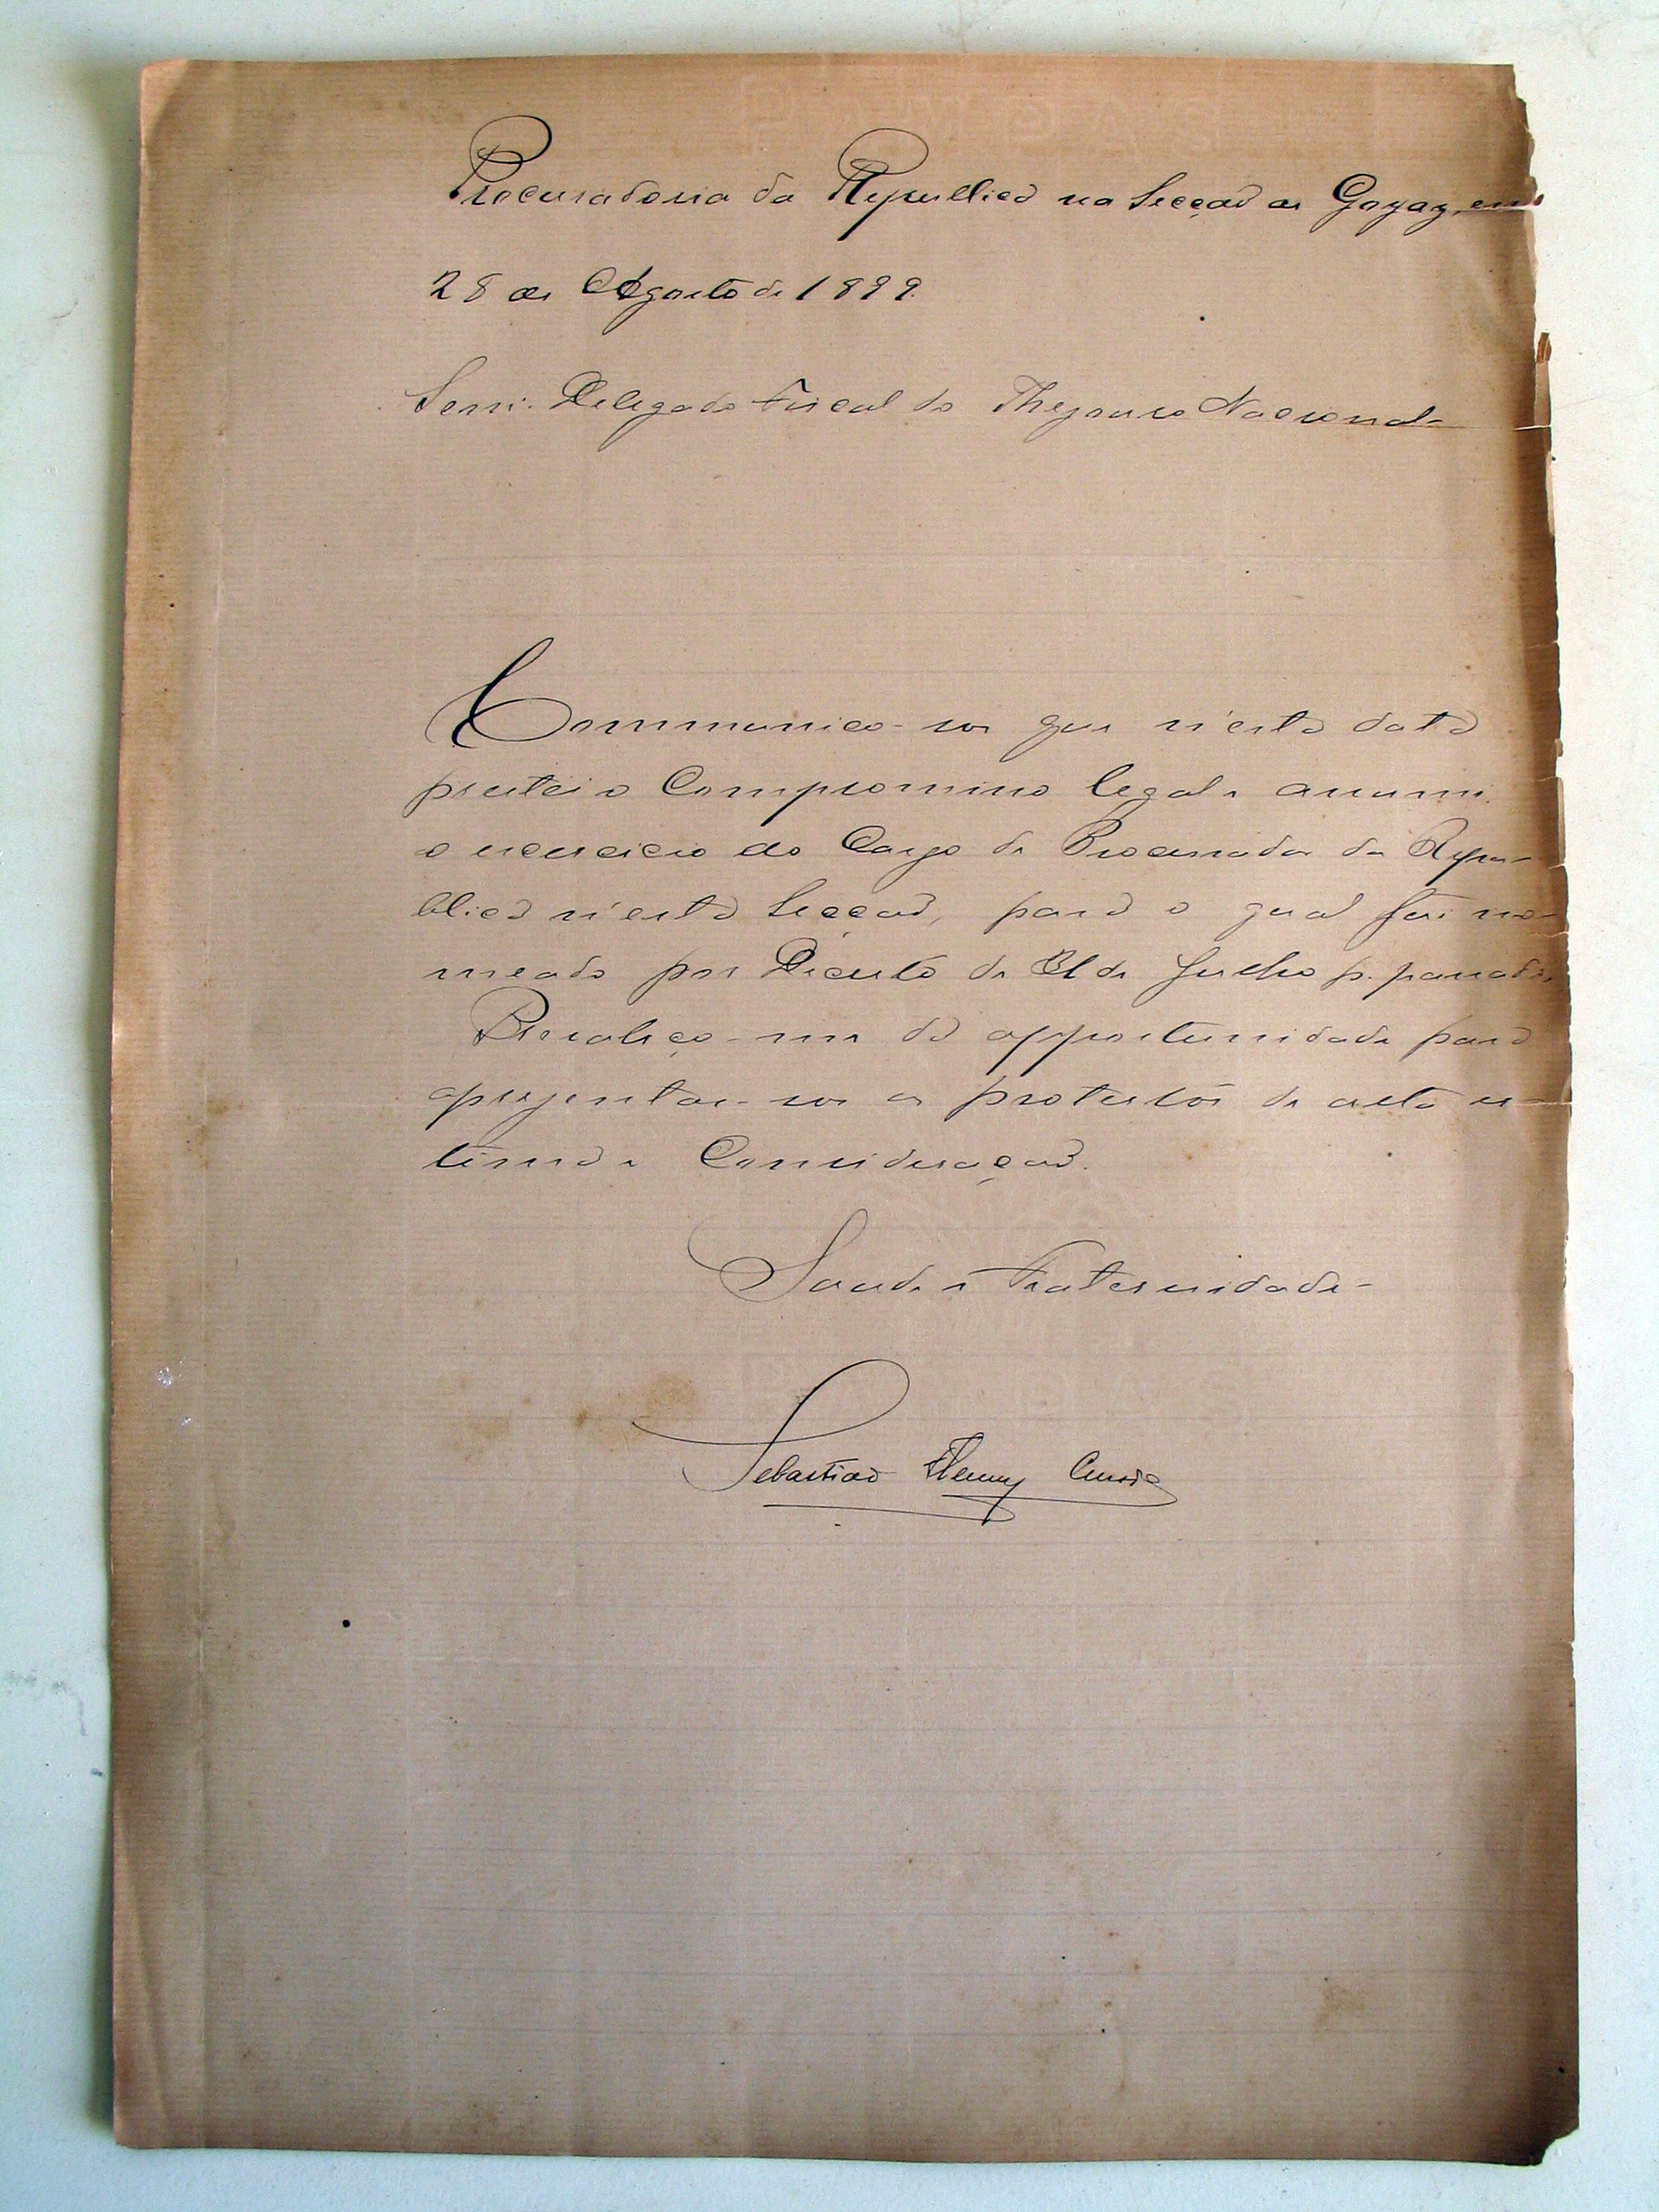 Procuradoria da Republica na Secção de Goyaz, em
28 de Agosto de 1899.
Senr. Delegado Fiscal do Thezouro Nacional
Communico-vos que n'esta data
prestei o Compromisso legal e assumi
o exercicio do Cargo de Procurador da Repu-
blica n'esta Secção, para o qual fui no-
meado por Decreto de de Julho p. passado.
Prevaleço-me da opportunidade para
aprezentar-vos os protestos de alta es-
tima e Consideração.
Saude e Fraternidade
Sebastião Fleury Curado